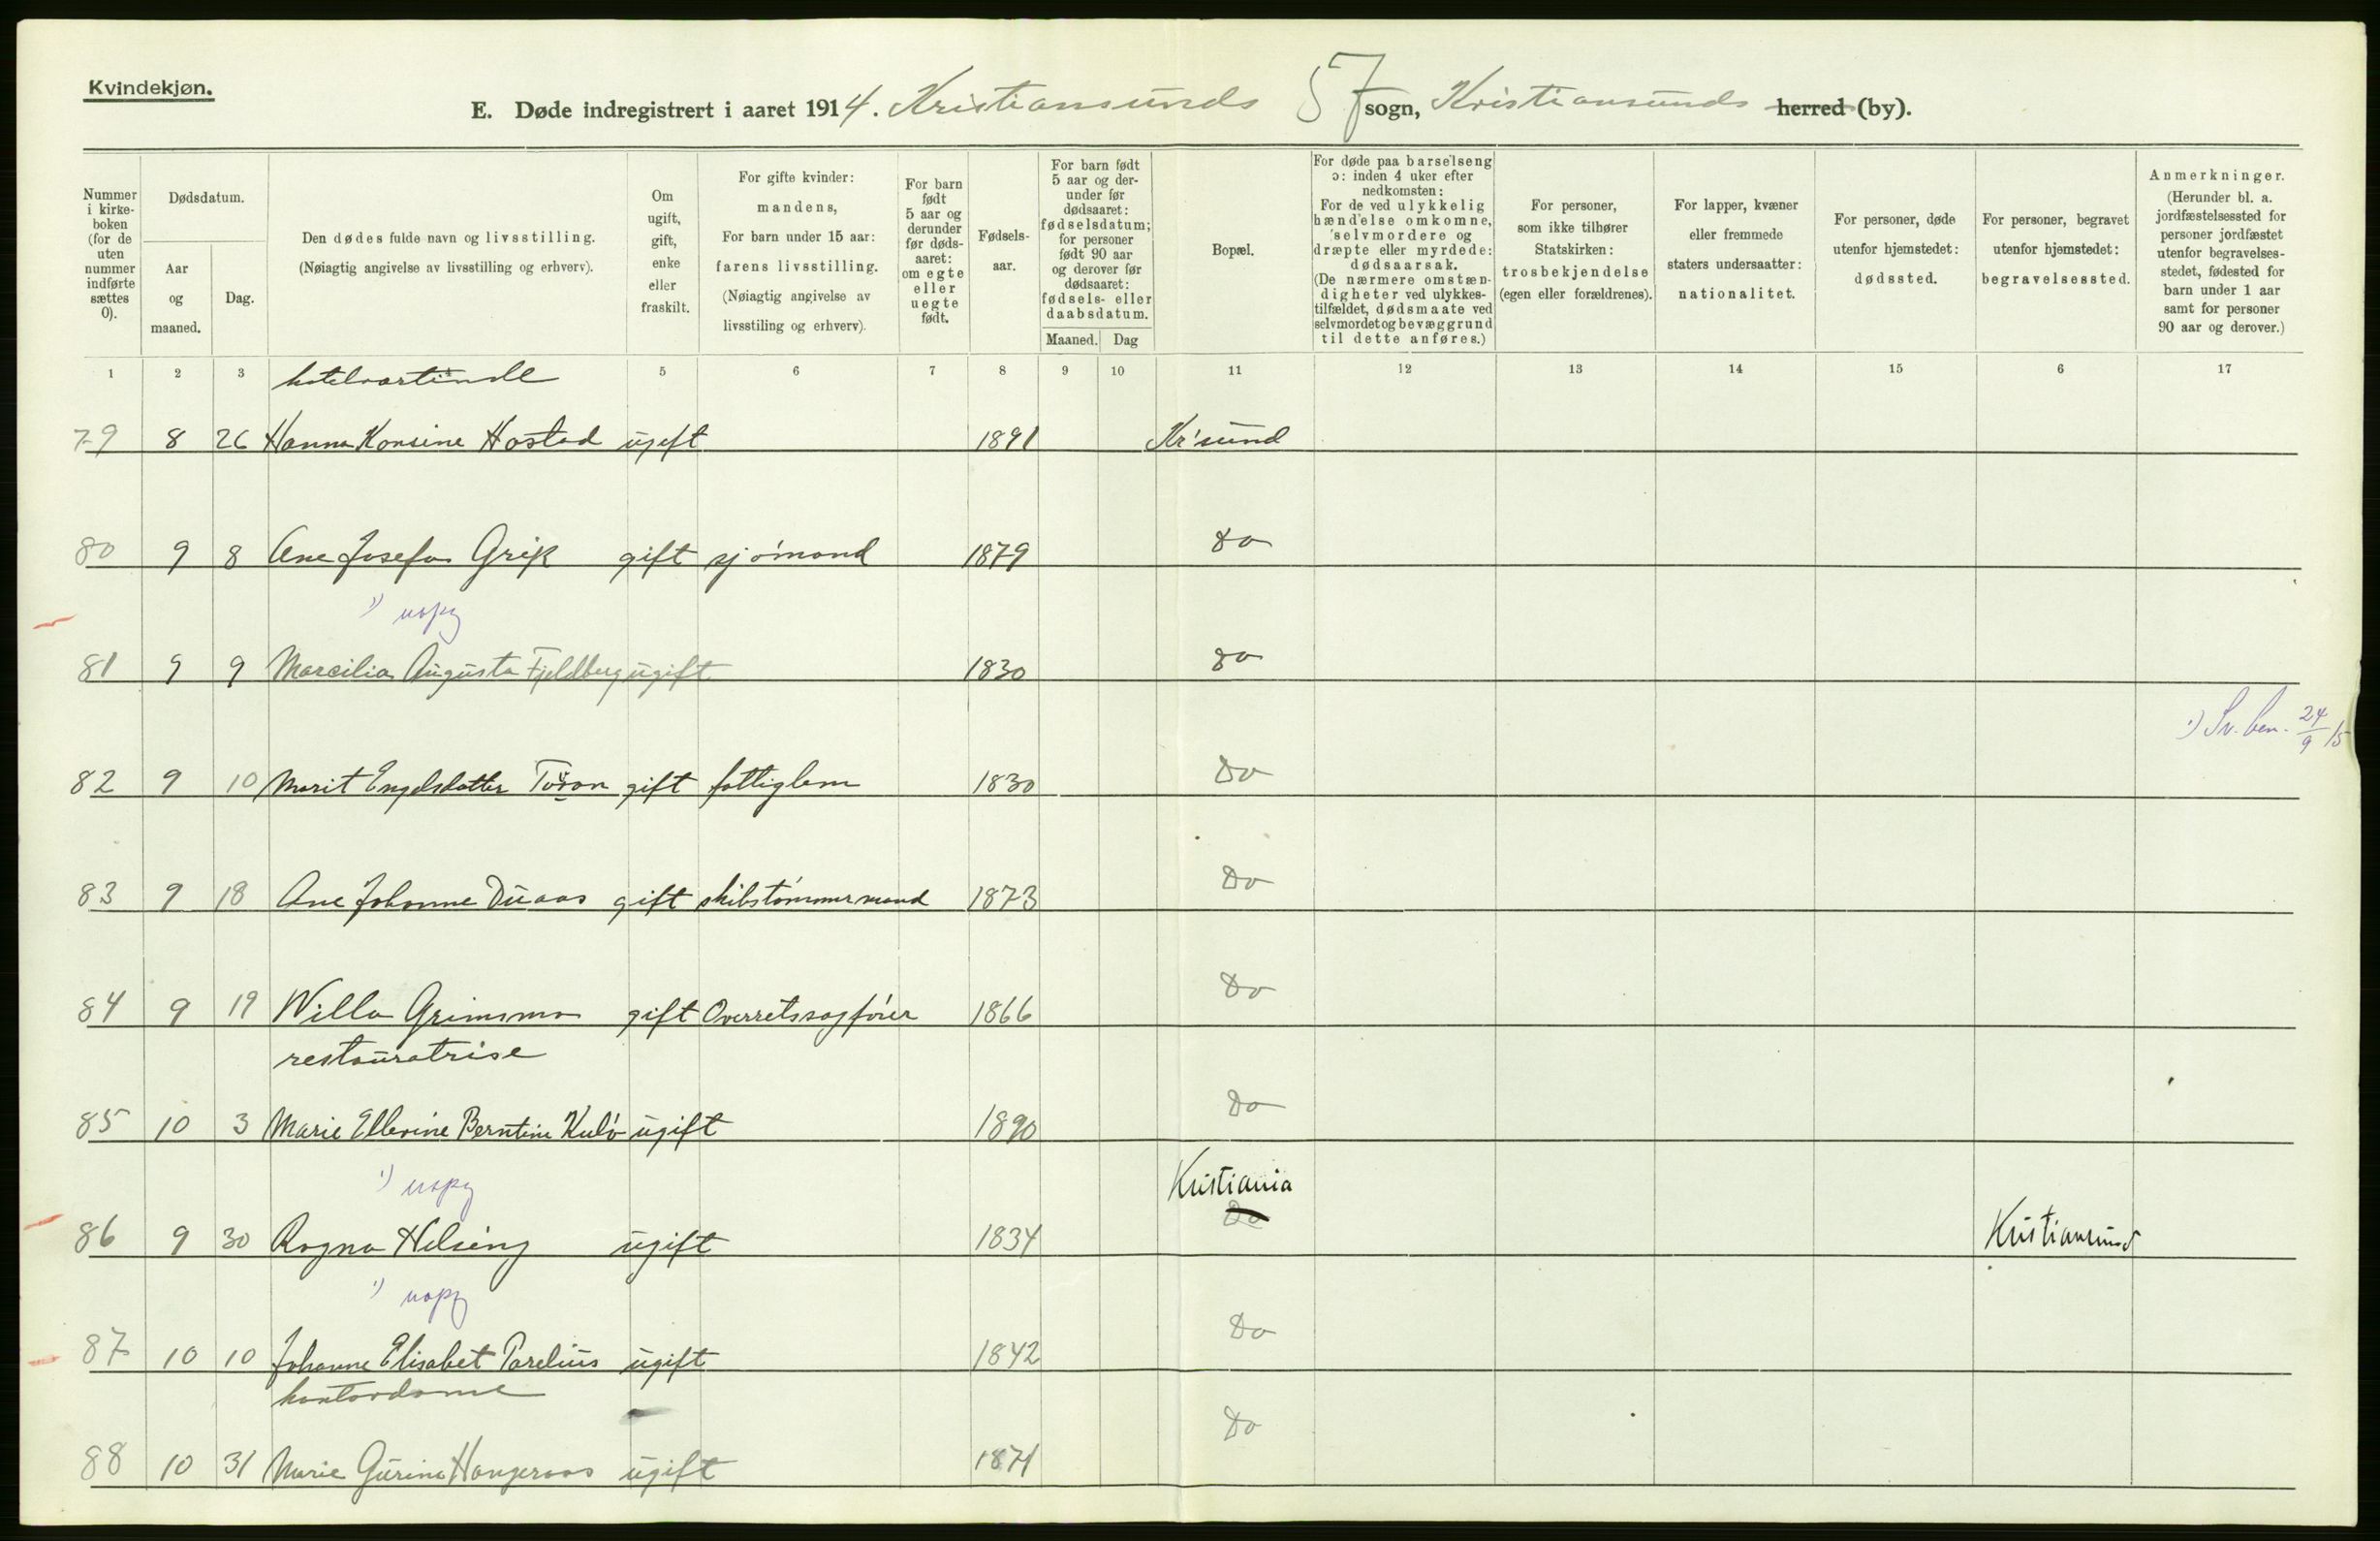 Kvindekjøn.
E. Døde indregistrert i aaret 1914. Kristiansunds 57 sogn, Kristiansunds herred (by).
Nummer i kirke-boken (for de uten nummer indførte sættes 0).
Dødsdatum.
Aar og maaned.
Dag.
Den dødes fulde navn og livsstilling.
(Nøiagtig angivelse av livsstilling og erhverv).
Om ugift, gift, enke eller fraskilt.
For gifte kvinder: mandens,
For barn under 15 aar: farens livsstilling.
(Nøiagtig angivelse av livsstiling og erhverv).
For barn født 5 aar og derunder før døds-aaret: om egte eller uegte født.
Fødsels-aar.
For barn født 5 aar og der-under før dødsaaret: fødselsdatum; for personer født 90 aar og derover før dødsaaret: fødsels- eller daabsdatum.
Maaned. Dag
Bopæl.
For døde paa barselseng ɔ: inden 4 uker efter nedkomsten:
For de ved ulykkelig hændelse omkomne, selvmordere og dræpte eller myrdede: dødsaarsak.
(De nærmere omstæn-digheter ved ulykkes-tilfældet, dødsmaate ved selvmordet og bevæggrund til dette anføres.)
For personer, som ikke tilhører Statskirken: trosbekjendelse (egen eller forældrenes).
For lapper, kvæner eller fremmede staters undersaatter: nationalitet.
For personer, døde utenfor hjemstedet: dødssted.
For personer, begravet utenfor hjemstedet: begravelsessted.
Anmerkninger.
(Herunder bl. a. jordfæstelsessted for personer jordfæstet utenfor begravelses-stedet, fødested for barn under 1 aar samt for personer 90 aar og derover.)
1 2 3 5 6 7 8 9 10 11 12 13 14 15 6 17
hotelvartinde
79 8 26 Hanna Konsine Hostad ugift 1891 Kr'sund
80 9 8 Ane Josefa Grip gift sjømand 1879 do
1) uopg
81 9 9 Marcilia Augusta Fjeldberg ugift 1830 do
1) Sv. ben. 24/9 15
82 9 10 Marit Engelsdatter gift fattiglem 1830 Do
83 9 18 Ane Johanne Duaas gift skibstømmermand 1873 Do
84 9 19 Willa Grimsmo gift Overretssagfører 1866 Do
restauratrise
85 10 3 Marie Ellevine Berntine Kulø ugift 1890 Do
1) uopg
Kristiania
86 9 30 Ragna Helsing ugift 1834 Do Kristiansund
1) uopg
87 10 10 Johanne Elisabet Parelius ugift 1842 Do
kontordame
88 10 31 Marie Gurina Hangeraas ugift 1871 Do